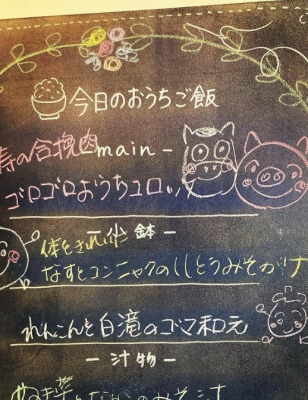 今日のおうちご飯
の合挽肉 -main-
ゴロゴロおうちコロッ
-小鉢-
体をきれいに
なすとコンニャクのししとうみそがけ
れんこんと白滝のゴマ和え
-汁物-
のみそ汁